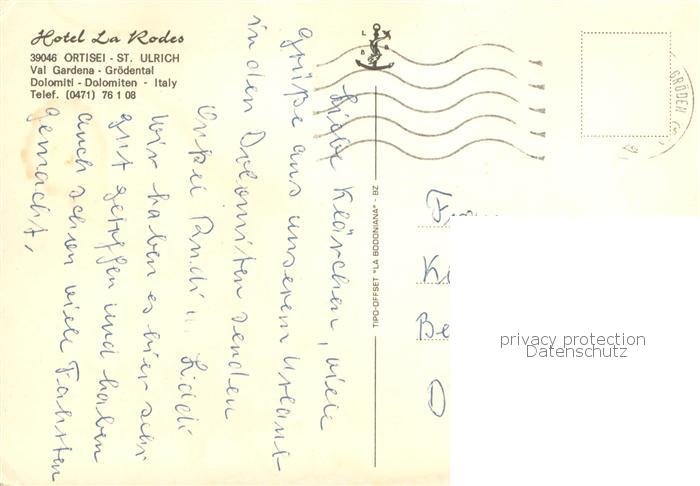 Hotel La Rodes
39046 ORTISEI - ST. ULRICH
Val Gardena - Grödental
Dolomiti - Dolomiten - Italy
Telef. (0471) 76 1 08
Liebe Klärchen, viele
Grüße aus unserem Urlaub
in den Dolomiten senden
Rudi u.
Wir haben es hier sehr
gut getroffen und haben
auch schon viele Fahrten
gemacht.
TIPO-OFFSET "LA BODONIANA" - BZ
L B
GRÖDEN
privacy protection
Datenschutz